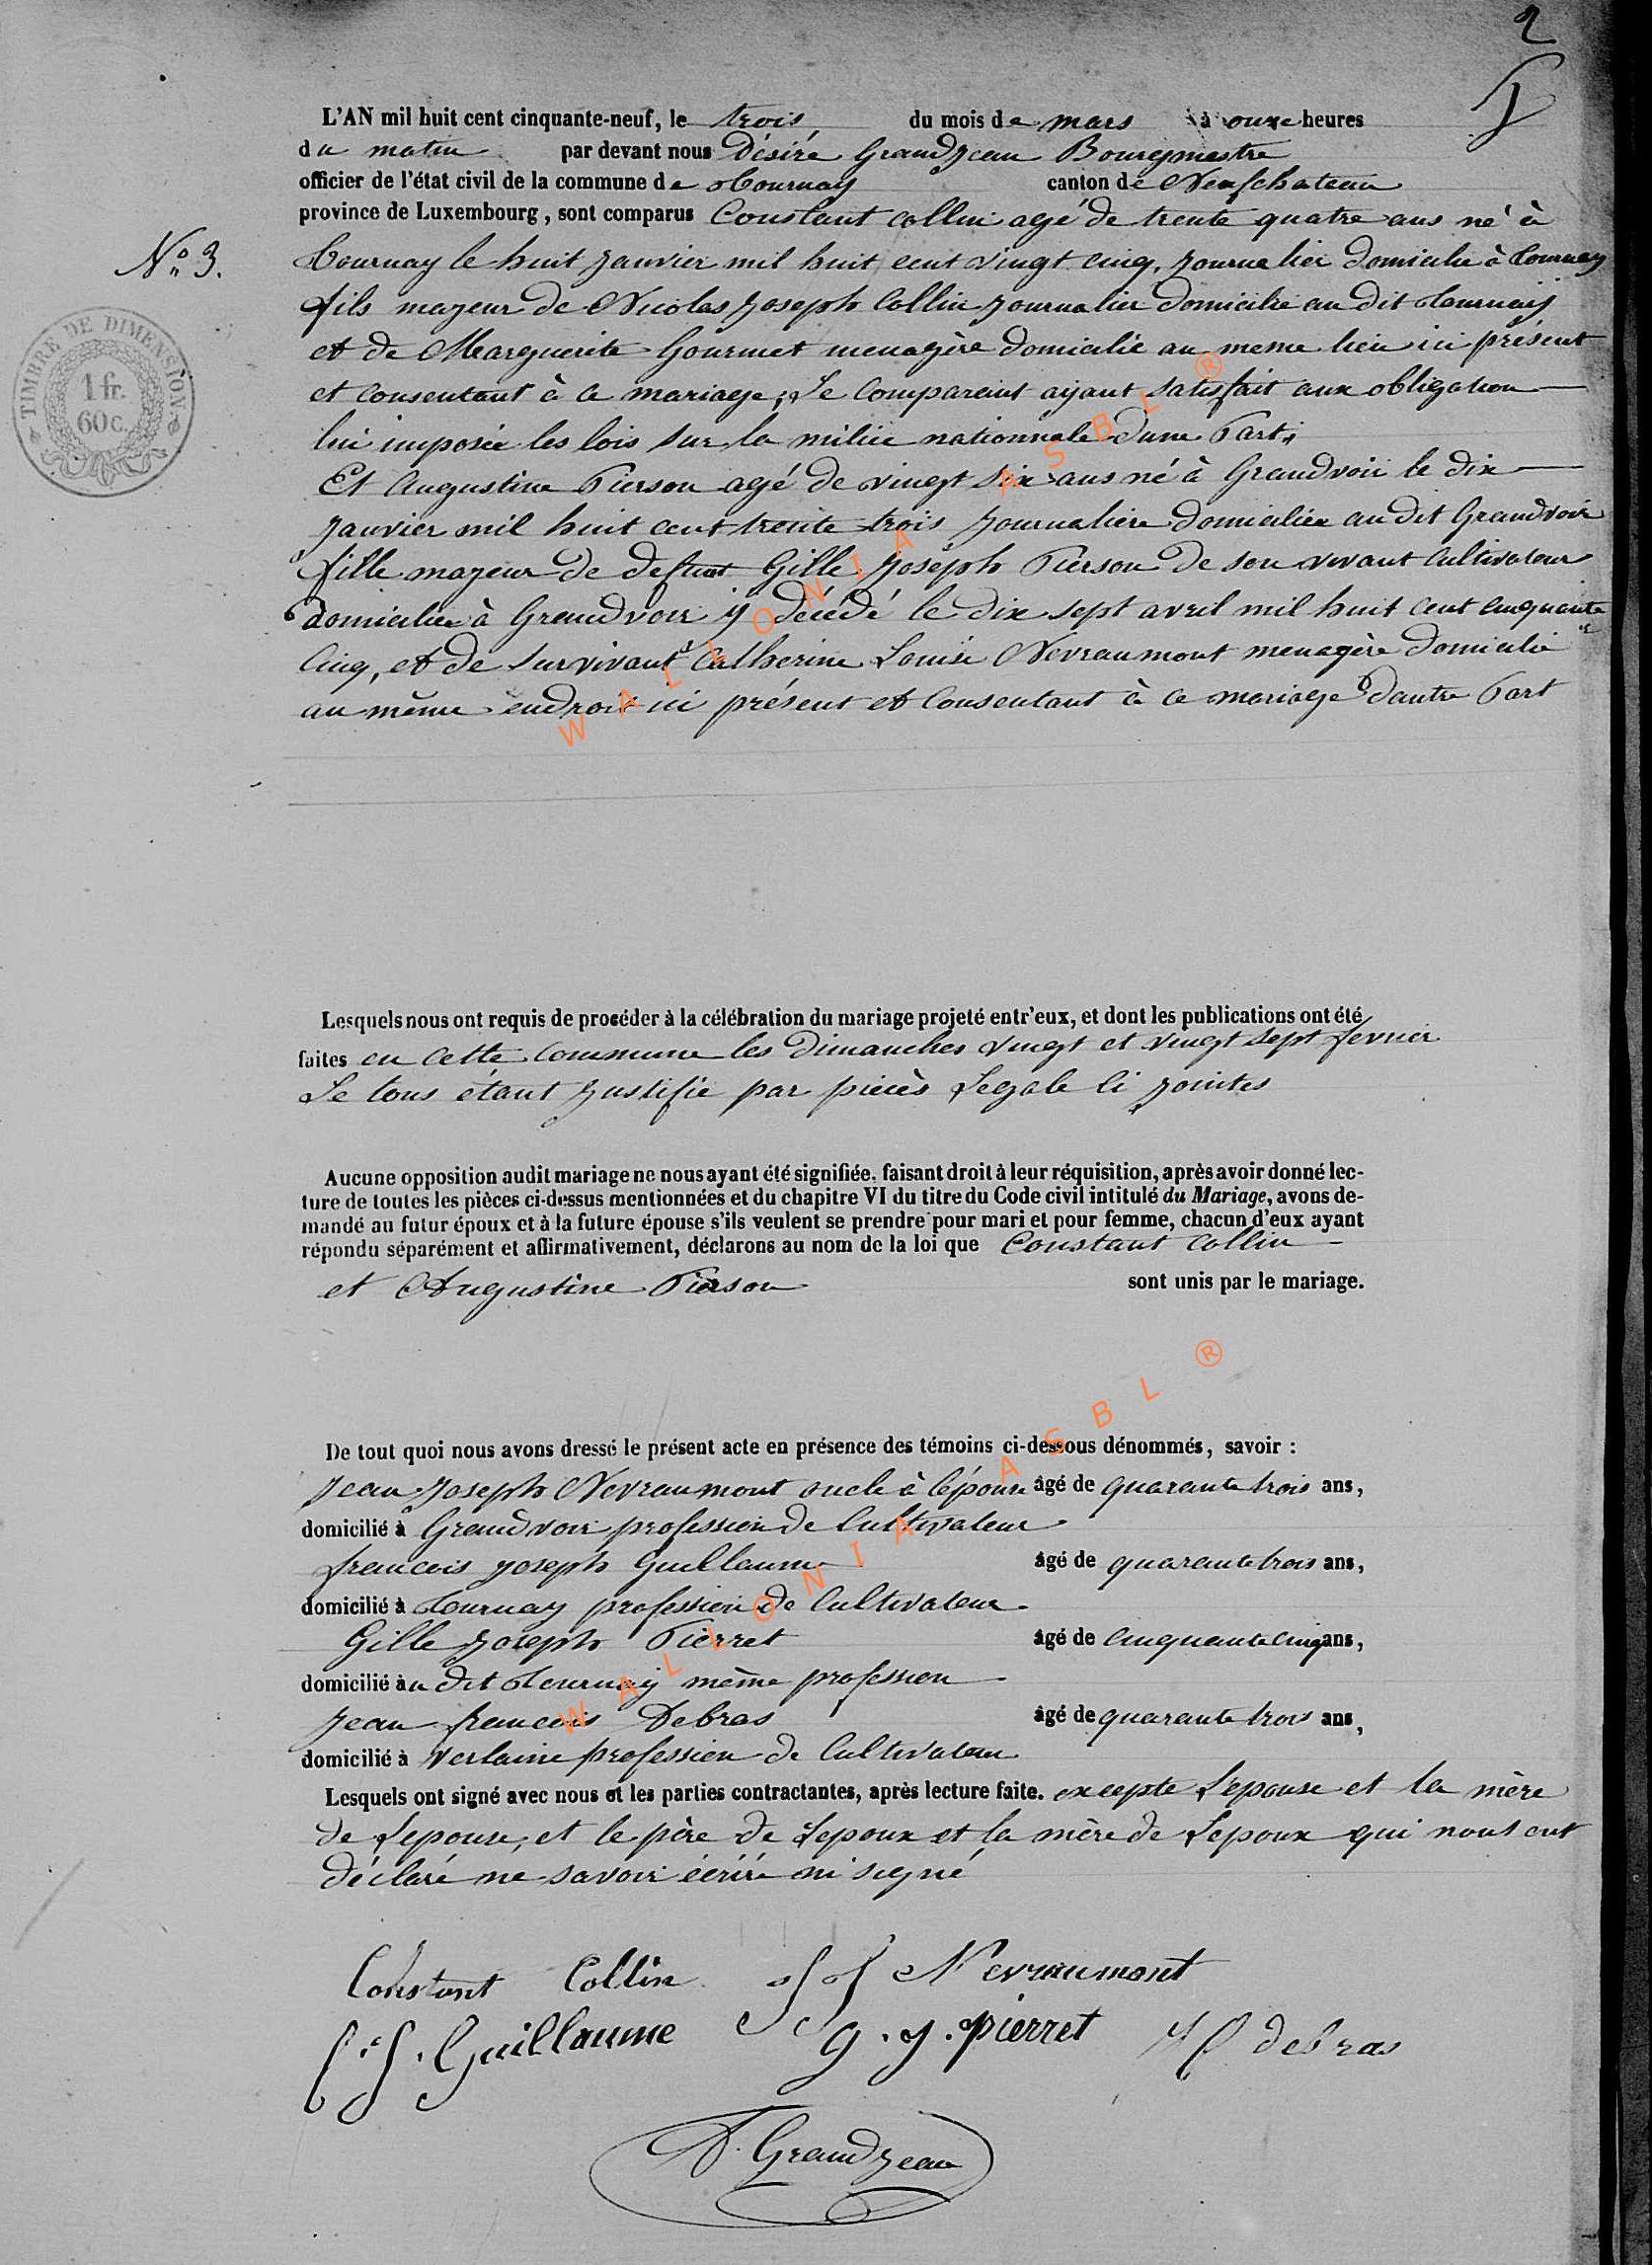 2
L'AN mil huit cent cinquante-neuf, le trois du mois de mars à onze heures
du matin par devant nous Désiré Grandjean Bourgmestre
officier de l'état civil de la commune de Tournay canton de Neufchateau
province de Luxembourg, sont comparus Constant Collin agé de trente quatre ans né à
N° 3.
Tournay le huit janvier mil huit cent vingt cinq, journalier domicilié à Tournay
fils majeur de Nicolas Joseph Collin journalier domicilié au dit Tournay
et de Marguerite Gourmet menagère domicilié au meme lieu ici présent
et consentant à ce mariage; Le comparaint ayant satisfait aux obligation
lui imposée les lois sur la milice nationnale dune Part;
Et Augustine Pierson agé de vingt six ans né à Grandvoir le dix
janvier mil huit cent trente trois journalière domiciliée au dit Grandvoir
fille majeur de defunt Gille Joseph Pierson de son vivant cultivateur
domicilié à Grandvoir y décédé le dix sept avril mil huit cent cinquante
cinq, et de survivant Catherine Louise Nevraumont menagère domicilié
au même endroit ici présent et consentant à ce mariage dautre Part
TIMBRE DE DIMENSION
1 fr.
60 c.
Lesquels nous ont requis de procéder à la célébration du mariage projeté entr'eux, et dont les publications ont été
faites en cette commune les dimanches vingt et vingt sept fevrier
Le tous étant justifié par pièces Legale ci jointes
Aucune opposition audit mariage ne nous ayant été signifiée, faisant droit à leur réquisition, après avoir donné lec-
ture de toutes les pièces ci-dessus mentionnées et du chapitre VI du titre du Code civil intitulé du Mariage, avons de-
mandé au futur époux et à la future épouse s'ils veulent se prendre pour mari et pour femme, chacun d'eux ayant
répondu séparément et affirmativement, déclarons au nom de la loi que Constant Collin
et Augustine Pierson sont unis par le mariage.
De tout quoi nous avons dressé le présent acte en présence des témoins ci-dessous dénommés, savoir :
Jean Joseph Nevraumont oncle à l'épouse âgé de quarante trois ans,
domicilié à Grandvoir profession de Cultivateur
francois joseph Guillaume âgé de quarante trois ans,
domicilié à Tournay profession de Cultivateur
Gille Joseph Pierret âgé de cinquante cinq ans,
domicilié au dit Tournay même profession
Jean francois Debras âgé de quarante trois ans,
domicilié à Verlaine profession de Cultivateur
Lesquels ont signé avec nous et les parties contractantes, après lecture faite. excepte Lepouse et la mère
de Lepouse, et le père de Lepoux et la mère de Lepoux qui nous ont
déclaré ne savoir écrire ni signé
Constant Collin J J Nevraumont
f. J. Guillaume g. j. pierret J f debras
D. Grandjean
WALLONIA ASBL ®
WALLONIA ASBL ®